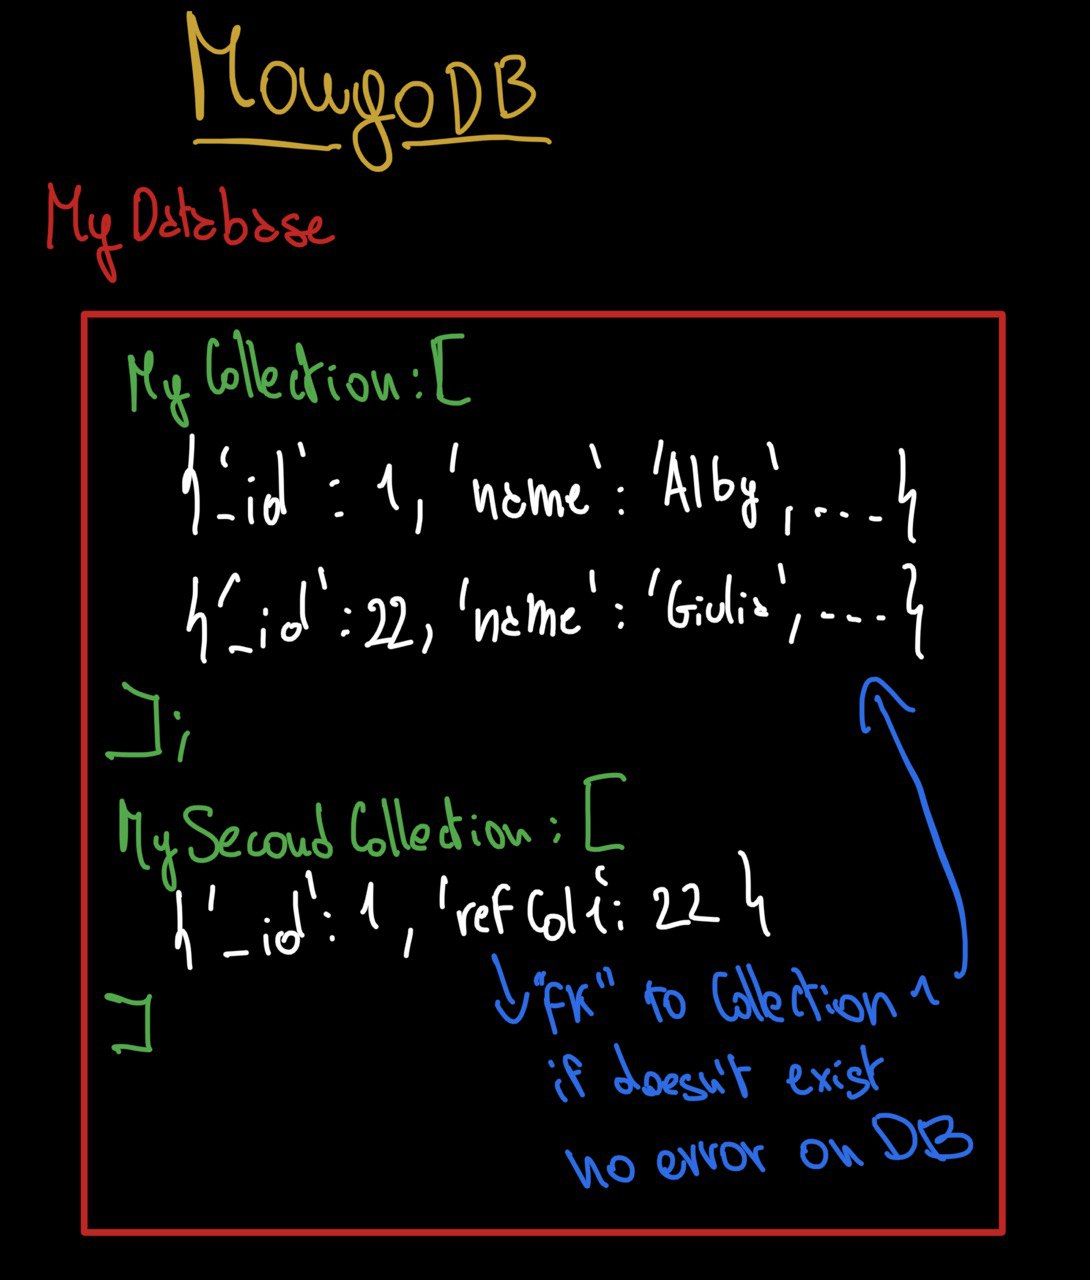 MongoDB
My Database
My Collection: [
{'_id': 1, 'name': 'Alby', ....}
{'_id': 22, 'name': 'Giulia', ....}
];
My Second Collection: [
{'_id': 1, 'refCol1: 22}
↓ "FK" to Collection 1
if doesn't exist
no error on DB
]